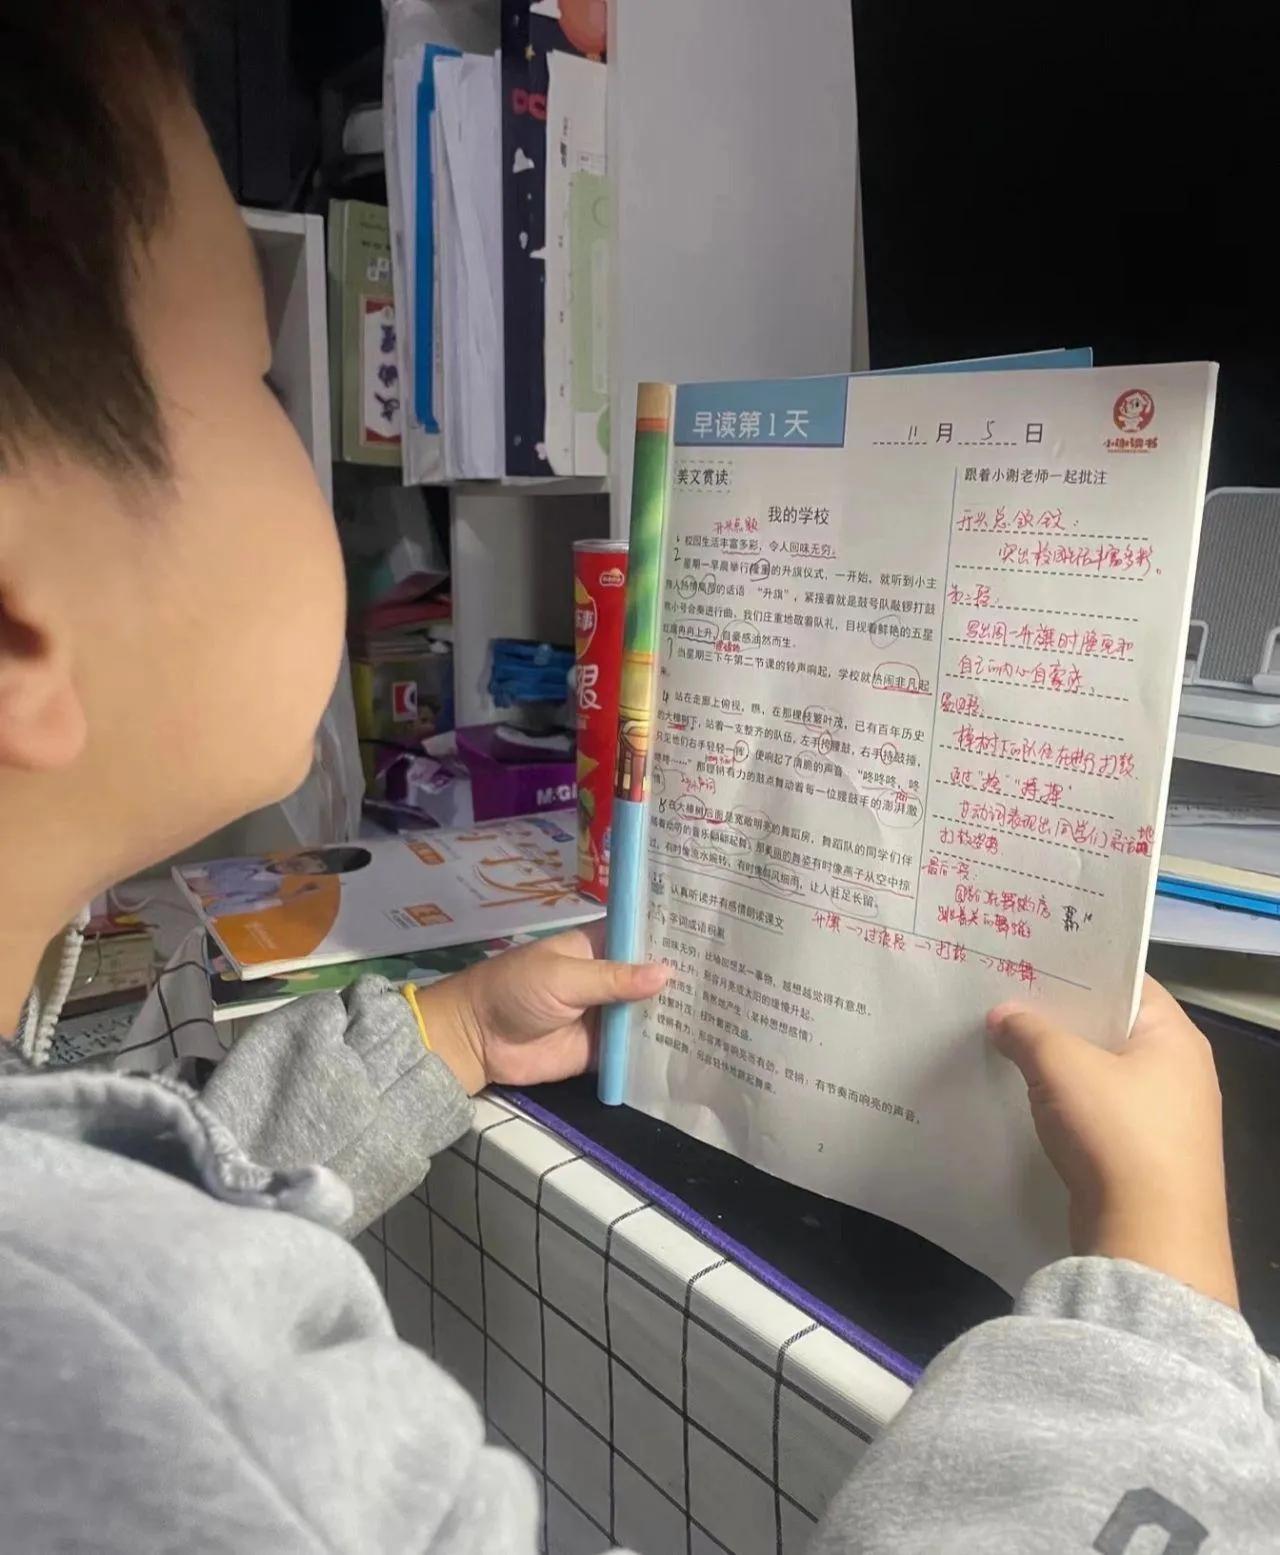 早读第1天
11月5日
小谢读书
美文赏读
我的学校
开头点题
1 校园生活丰富多彩，令人回味无穷。
2 星期一早晨举行隆重的升旗仪式，一开始，就听到小主
持人热情 的话语 “升旗”，紧接着就是鼓号队敲锣打鼓
小号合奏进行曲，我们庄重地敬着队礼，目视着鲜艳的五星
红旗冉冉上升，自豪感油然而生。
过渡段
当星期三下午第二节课的铃声响起，学校就热闹非凡起
来。
站在走廊上俯视，瞧，在那棵枝繁叶茂，已有百年历史
的大樟树下，站着一支整齐的队伍，左手挎腰鼓，右手持鼓捶，
只见他们右手轻轻一挥，便响起了清脆的声音，“咚咚咚，咚
咚咚……”那铿锵有力的鼓点舞动着每一位腰鼓手的澎湃激
情。
在大樟树后面是宽敞明亮的舞蹈房，舞蹈队的同学们伴
随着动听的音乐翩翩起舞，那美丽的舞姿有时像燕子从空中掠
过，有时像流水婉转，有时像斜风细雨，让人驻足长留。
认真听读并有感情朗读课文
升旗→过渡段→打鼓→跳舞
字词成语积累
1、回味无穷：比喻回想某一事物，越想越觉得有意思。
2、冉冉上升：形容月亮或太阳的缓慢升起。
油然而生：自然地产生（某种思想感情）。
枝繁叶茂：枝叶繁密茂盛。
5、铿锵有力：形容声音响亮而有劲。铿锵：有节奏而响亮的声音。
6、翩翩起舞：形容轻快地跳起舞来。
2
跟着小谢老师一起批注
开头总领全文：
突出校园生活丰富多彩。
第二段：
写出周一升旗时隆重和
自己的内心自豪感。
第四段：
樟树下的队伍在进行打鼓
通过“挎”“持挥”
动词表现出同学们灵活地
打鼓姿势
最后一段：
同学在舞蹈房